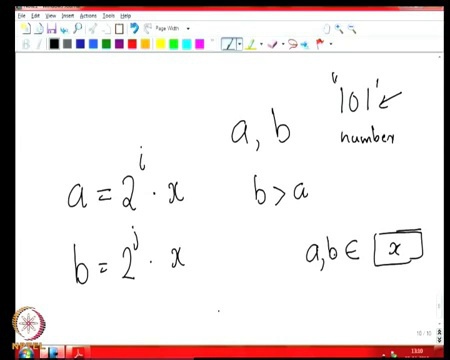 File Edit View Insert Actions Tools Help
Page Width
"101"
a, b
number
a = 2^i · x
b > a
b = 2^j · x
a,b ∈ x
NPTEL
13:10